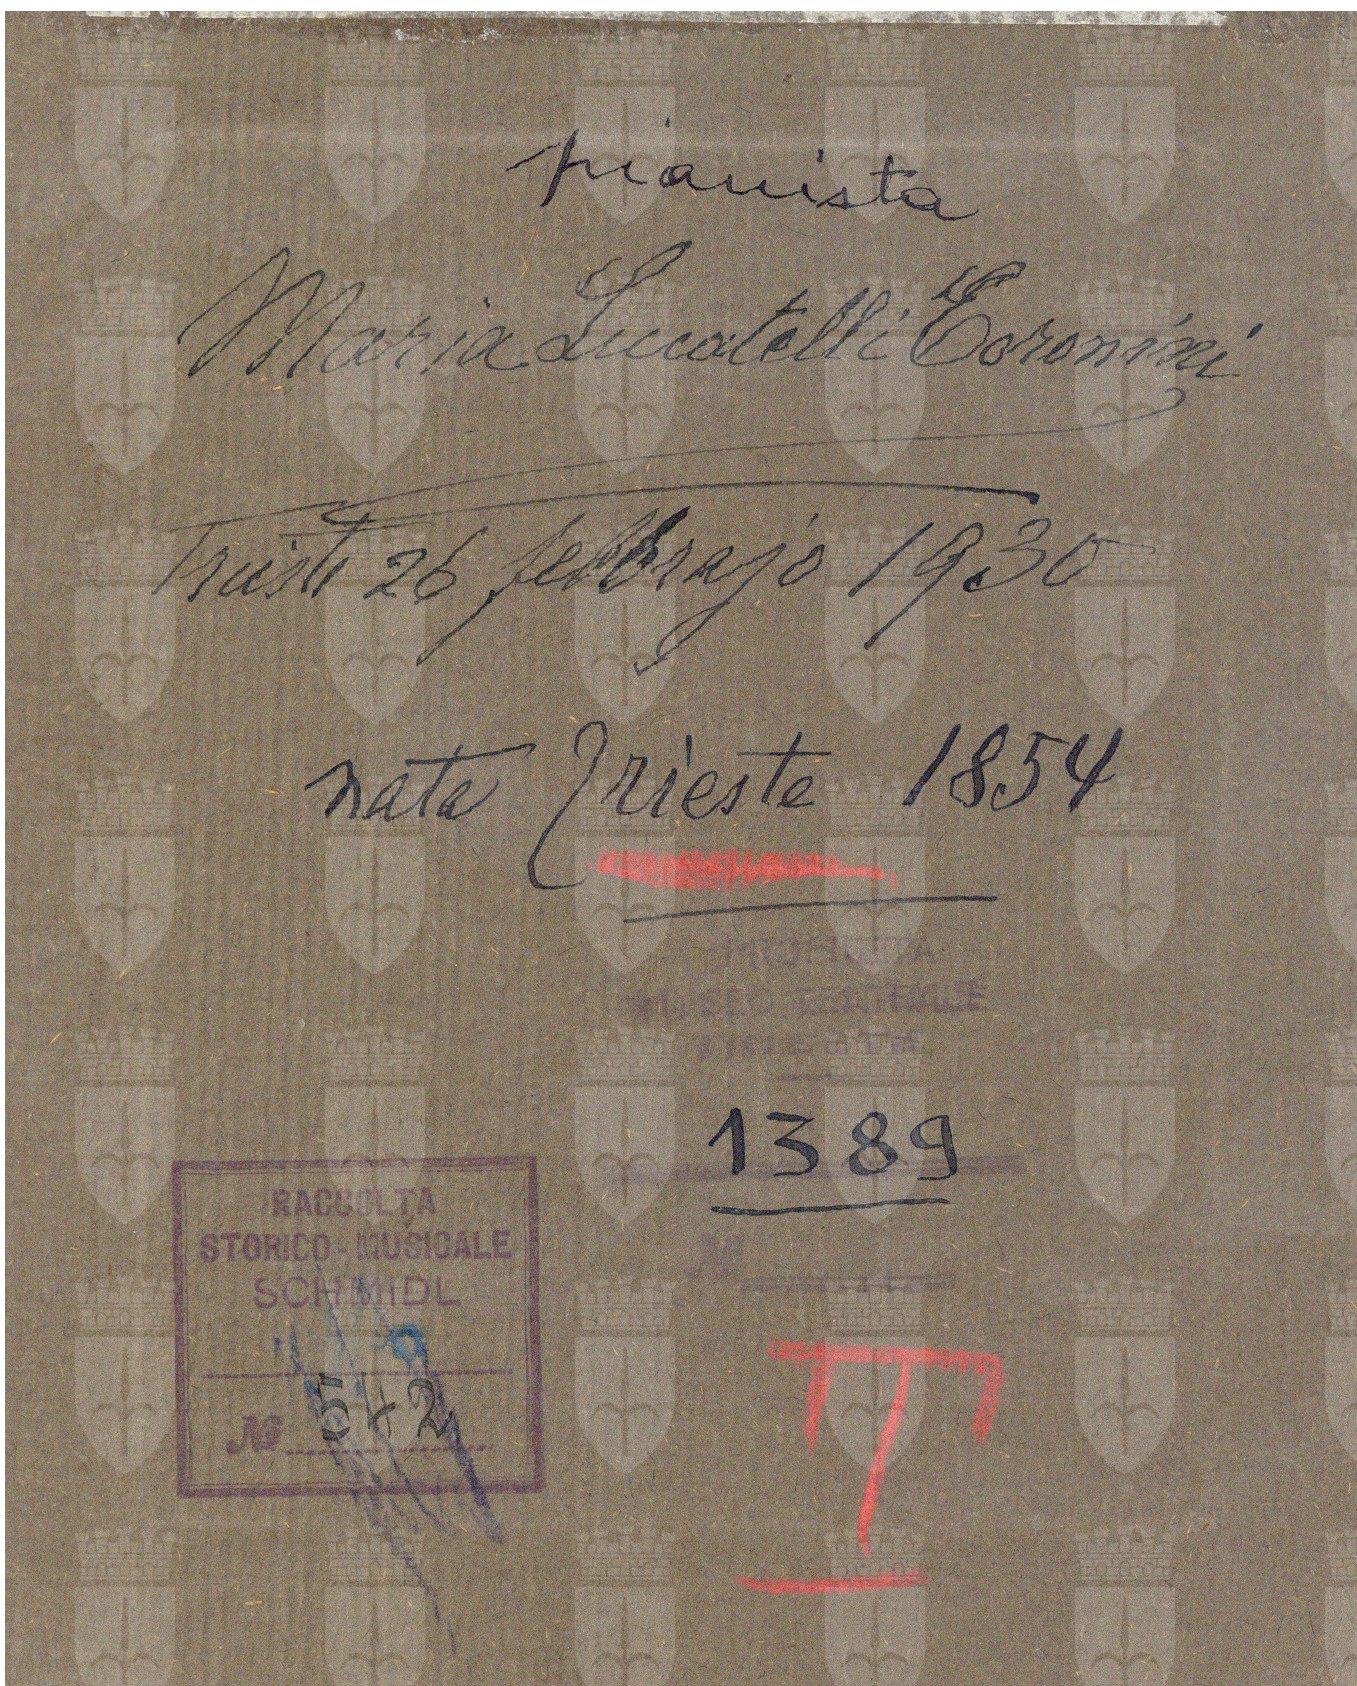 pianista
Maria Lucatelli Coronini
Trieste 26 febbrajo 1930
nata Trieste 1854
MUSEO TEATRALE
1389
RACCOLTA
STORICO-MUSICALE
SCHMIDL
№ 542
T